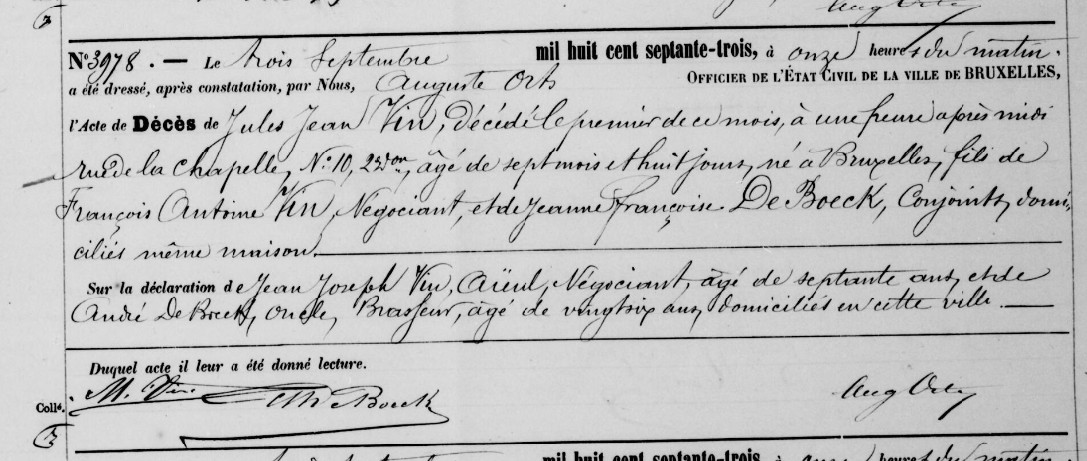 Aug Orts
3
N° 3978. — Le trois Septembre mil huit cent septante-trois, à onze heures du matin.
a été dressé, après constatation, par Nous, Auguste Orts OFFICIER DE L'ÉTAT CIVIL DE LA VILLE DE BRUXELLES,
l'Acte de Décès de Jules Jean Vin, décédé le premier de ce mois, à une heure après midi
rue de la Chapelle, N° 10, 2e don, âgé de sept mois et huit jours, né à Bruxelles, fils de
François Antoine Vin, Négociant, et de Jeanne françoise De Boeck, Conjoints, domi-
ciliés même maison.
Sur la déclaration de Jean Joseph Vin, Aïeul, Négociant, âgé de septante ans, et de
André De Boeck, oncle, Brasseur, âgé de vingt six ans, domiciliés en cette ville. —
Duquel acte il leur a été donné lecture.
Vin De Boeck Aug Orts
Collé.
3
mil huit cent septante-trois, à onze heures du matin.